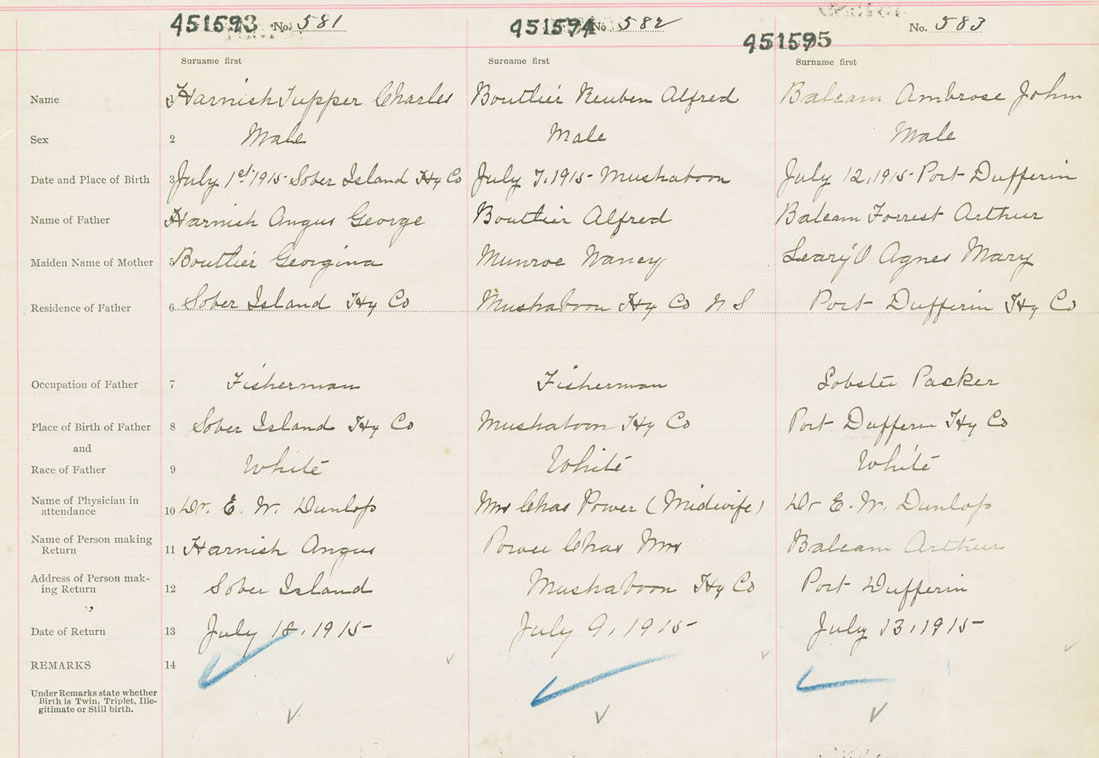 451593 No. 581 451594 No. 582 451595 No. 583
Surname first Surname first Surname first
Name 1 Harnish Tupper Charles Boutlier Reuben Alfred Balcam Ambrose John
Sex 2 Male Male Male
Date and Place of Birth 3 July 1st 1915 Sober Island Hy Co July 7, 1915 Mushaboon July 12, 1915 Port Dufferin
Name of Father Harnish Angus George Boutlier Alfred Balcam Forrest Arthur
Maiden Name of Mother 5 Boutlier Georgina Munroe Nancy Leary O Agnes Mary
Residence of Father 6 Sober Island Hy Co Mushaboon Hy Co N S Port Dufferin Hy Co
Occupation of Father 7 Fisherman Fisherman Lobster Packer
Place of Birth of Father 8 Sober Island Hy Co Mushaboon Hy Co Port Dufferin Hy Co
and
Race of Father 9 White White White
Name of Physician in
attendance 10 Dr. E. W. Dunlop Mrs Chas Power (Midwife) Dr E. W. Dunlop
Name of Person making
Return 11 Harnish Angus Power Chas Mrs Balcam Arthur
Address of Person mak-
ing Return 12 Sober Island Mushaboon Hy Co Port Dufferin
Date of Return 13 July 18, 1915 July 9, 1915 July 13, 1915
REMARKS 14
Under Remarks state whether
Birth is Twin, Triplet, Ille-
gitimate or Still birth.